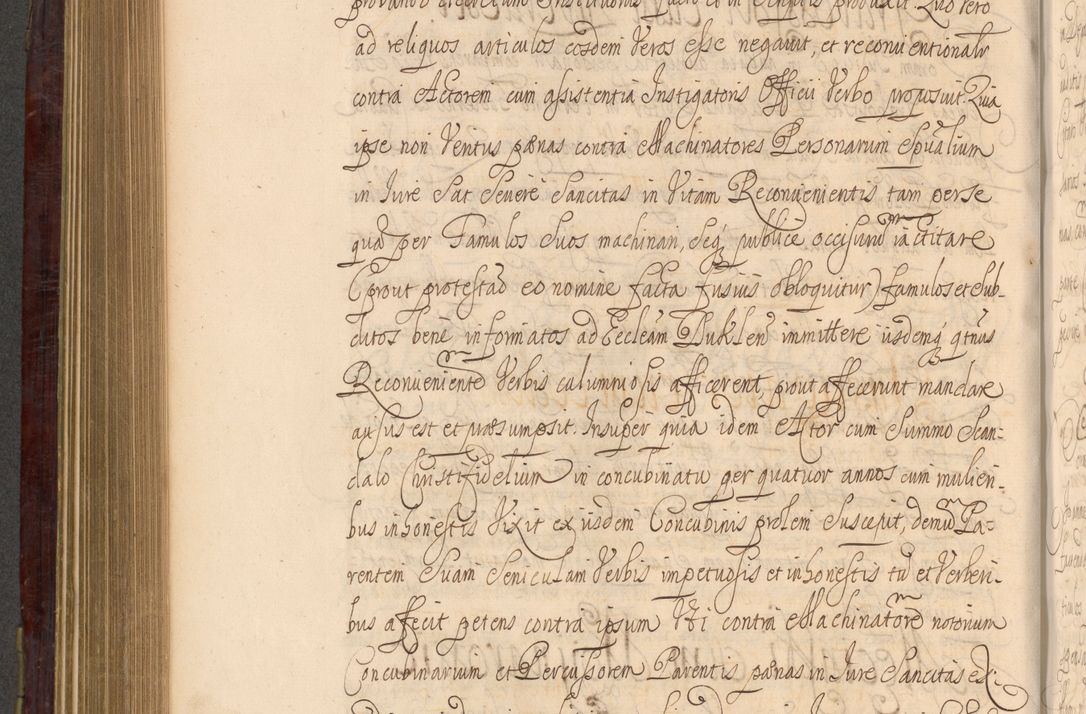 ad reliquos articulos eosdem Veros esse negavit, et reconventionalr
contra Actorem cum assistentia Instigatoris Officii Verbo proposuit. Quia
ipse non Veritus pænas contra Machinatores Personarum Spualium
in Iure Sat Severe Sancitas in Vitam Reconvenientis tam per se
qua per Famulos Suos machinari, Seq publice occisurum iactitare
(prout protestao eo nomine facta fusius obloquitur) famulos et Sub-
ditos bene informatos ad Eccleam Dukleñ immittere iisdemq qtnus
Reconvenientem Verbis calumniosis afficerent, prout affecerunt mandare
ausus est et præsumpsit. Insuper quia idem Actor cum Summo Scan-
dalo Christifidelium in concubinatu per quatuor annos cum mulieri-
bus inhonestis Vixit ex iisdem Concubinis prolem Suscepit, demum Pa-
rentem Suam Seniculam Verbis impetuosis et inhonestis tum et Verberi-
bus affecit petens contra ipsum Vti contra Machinatorem notorium
Concubinarium et Percussorem Parentis pænas in Iure Sancitas ex-